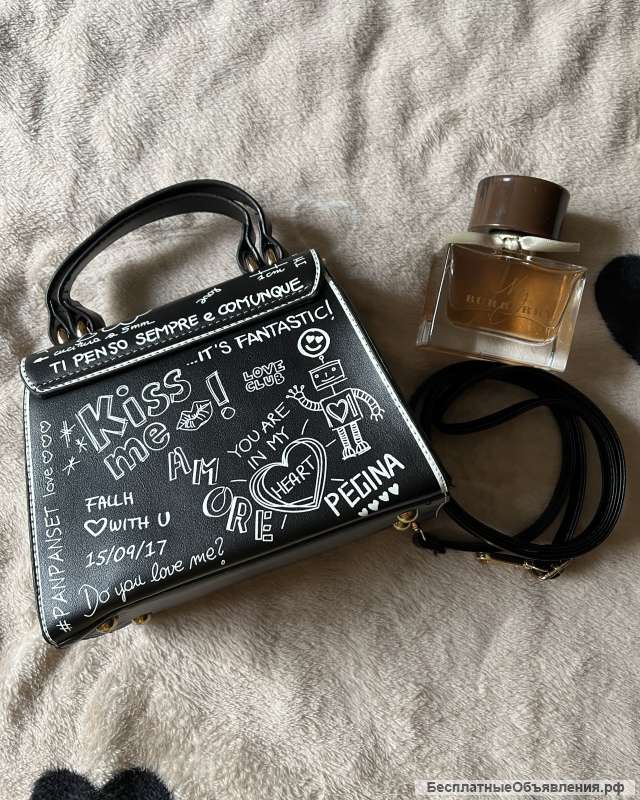 1cm
cucitura a 5mm
TI PENSO SEMPRE e COMUNQUE
...IT'S FANTASTIC!
Kiss
me !
LOVE
CLUB
YOU ARE
IN MY
HEART
AMORE
PEGINA
FALLH
♡WITH U
15/09/17
Do you love me?
#PANPANSET love♡♡♡
BURBERRY
БесплатныеОбъявления.рф